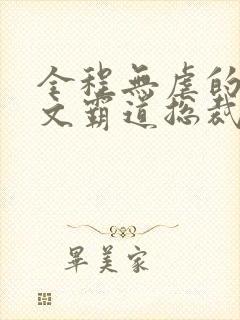 全程無虐的
文霸道總裁
畢美家